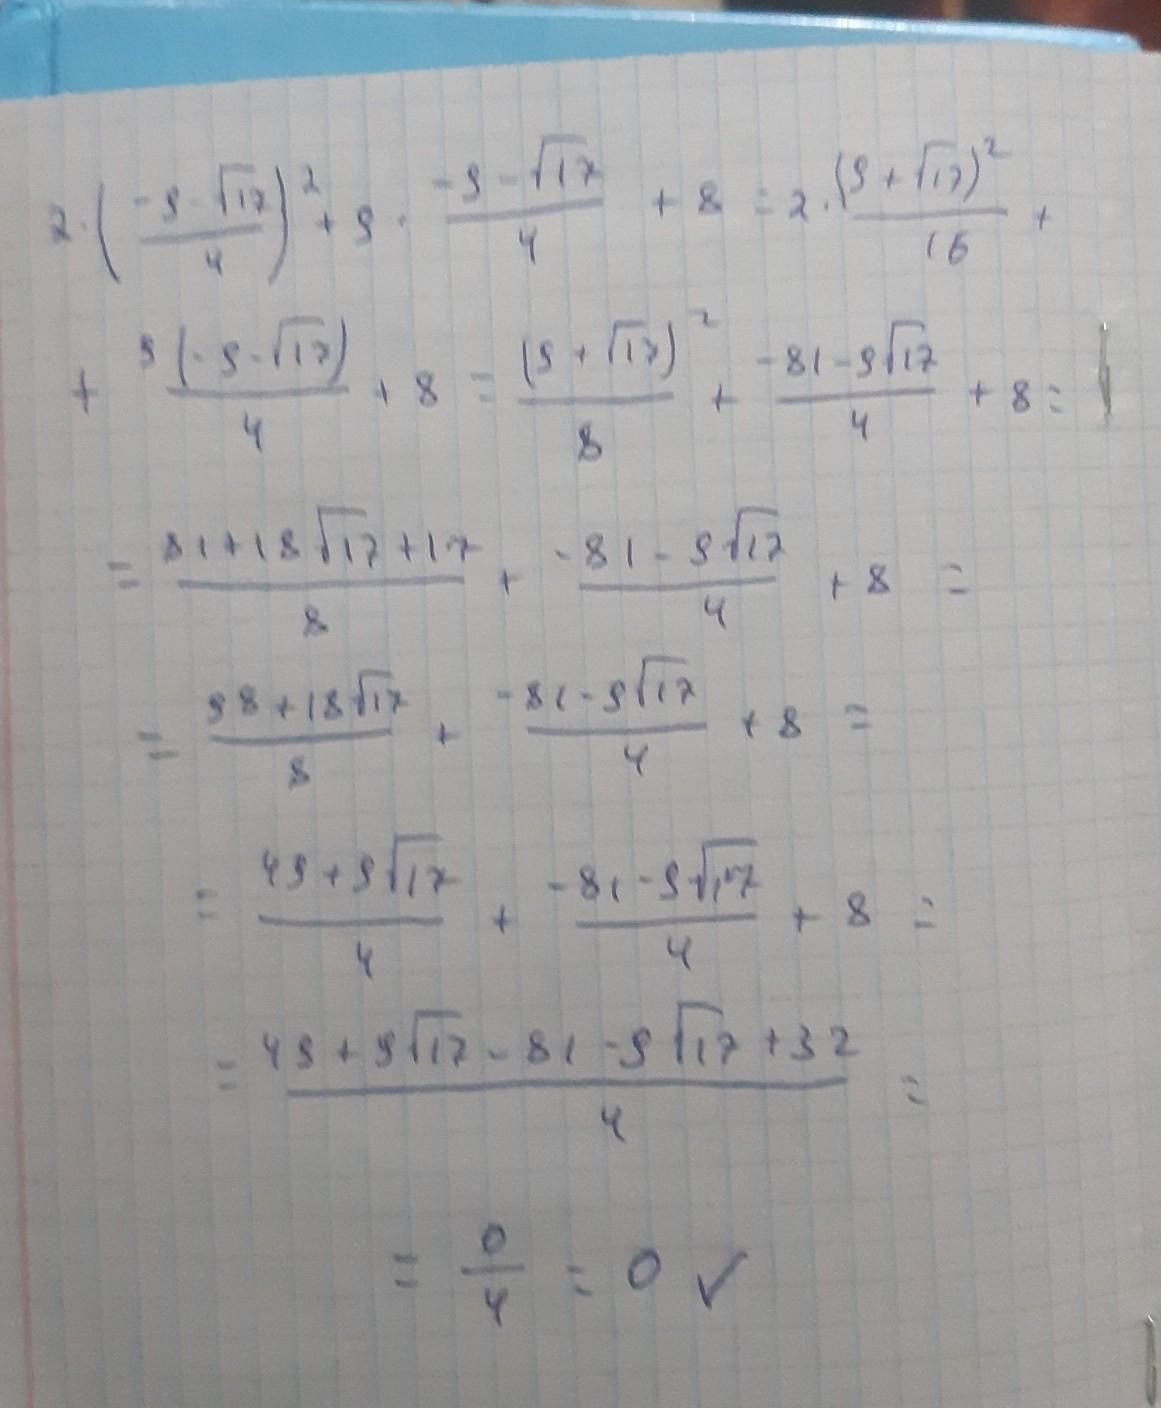 2·((-9-√17)/4)² + 9·(-9-√17)/4 + 8 = 2·(9+√17)²/16 +
+ 9(-9-√17)/4 + 8 = (9+√17)²/8 + (-81-9√17)/4 + 8 =
= (81+18√17+17)/8 + (-81-9√17)/4 + 8 =
= (98+18√17)/8 + (-81-9√17)/4 + 8 =
= (49+9√17)/4 + (-81-9√17)/4 + 8 =
= (49+9√17-81-9√17+32)/4 =
= 0/4 = 0 ✓